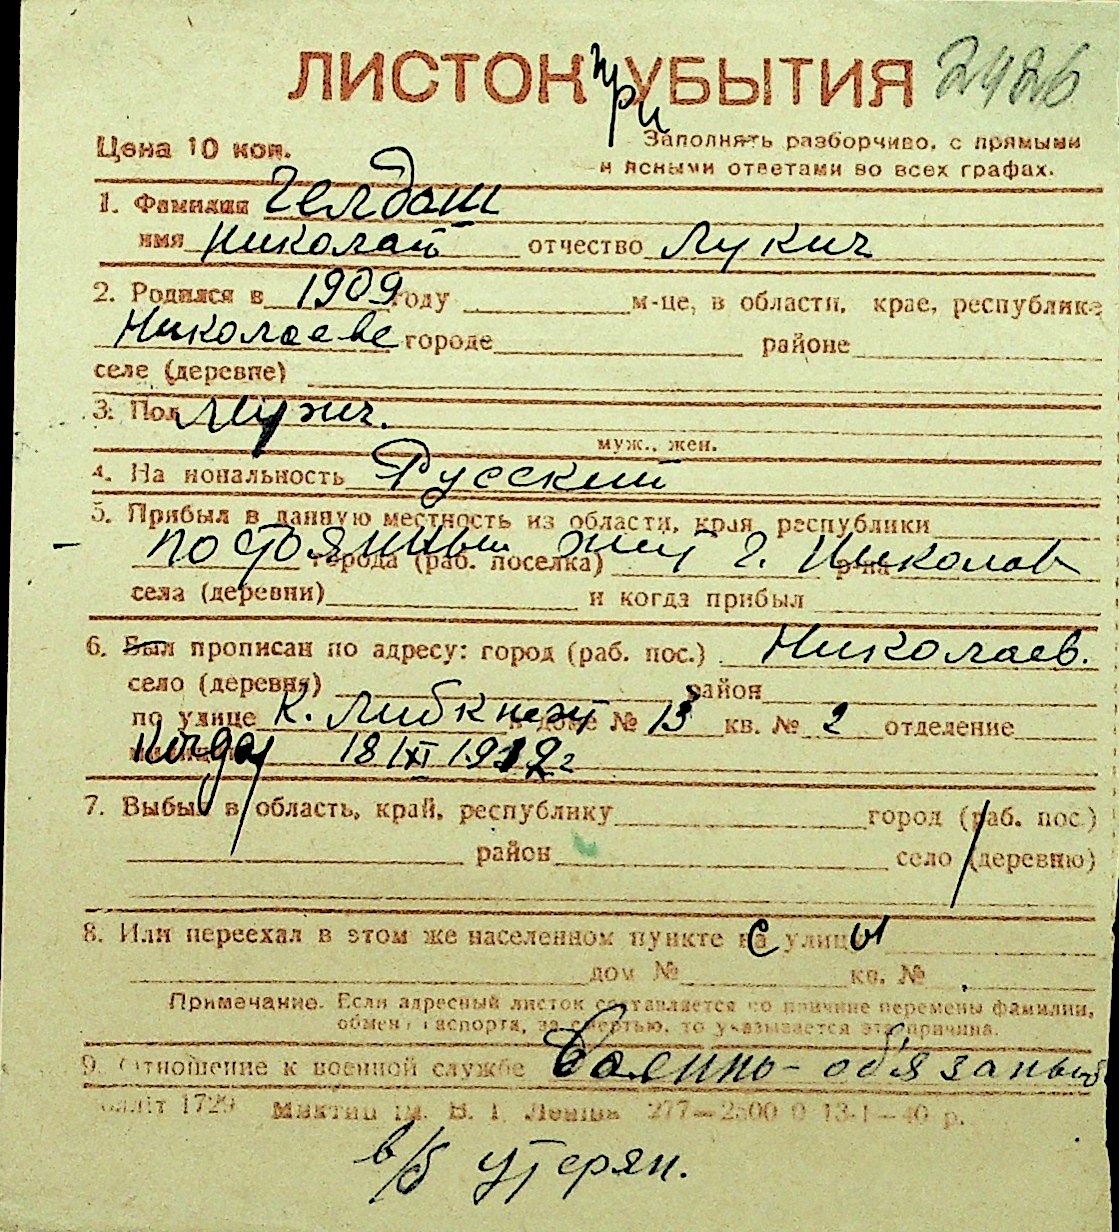 ЛИСТОК при УБЫТИЯ 2426
Цена 10 коп.
Заполнять разборчиво, с прямыми
и ясными ответами во всех графах.
1. Фамилия Гелдаш
имя Николай отчество Лукич
2. Родился в 1909 году м-це, в области, крае, республике
Николаеве городе районе
селе (деревне)
3. Пол Мужч.
муж., жен.
4. На иональность Русский
5. Прибыл в данную местность из области, края, республики
постоянный жит г. Николаев
города (раб. поселка) р-на
села (деревни) и когда прибыл
6. Был прописан по адресу: город (раб. пос.) Николаев.
село (деревня) район
по улице К. Либкнехт в доме № 13 кв. № 2 отделение
Когда 18/XI
7. Выбыл в область, край, республику город (раб. пос.)
район село (деревню)
8. Или переехал в этом же населенном пункте с улицы
дом № кв. №
Примечание. Если адресный листок составляется по причине перемены фамилии,
обмена паспорта, за смертью, то указывается эта причина.
9. Отношение к военной службе Военно-обязаный
1729 ім. В. І. Леніна 277—2500 0 13-I—40 р.
в/б утерян.